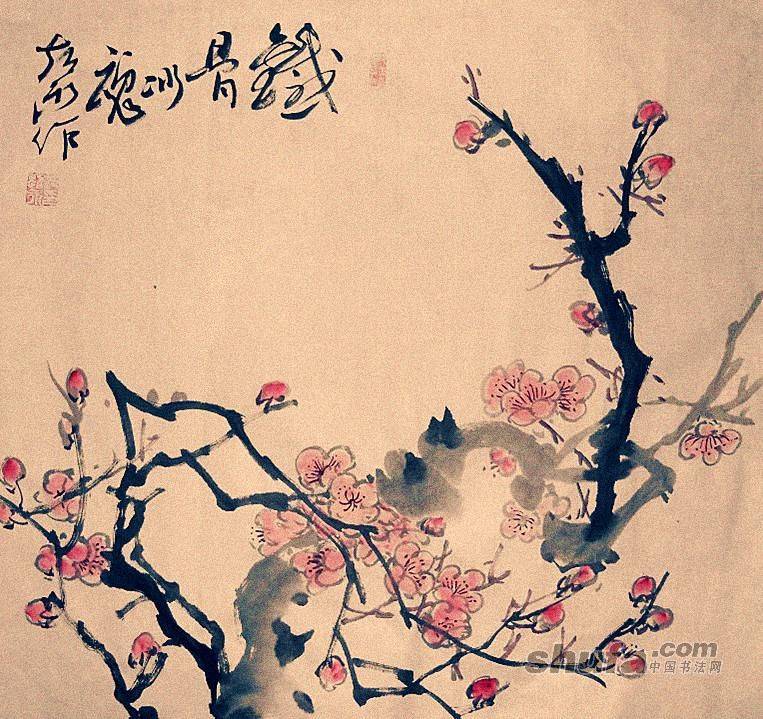 鐵骨冰魂
作
shufa.com
中国书法网